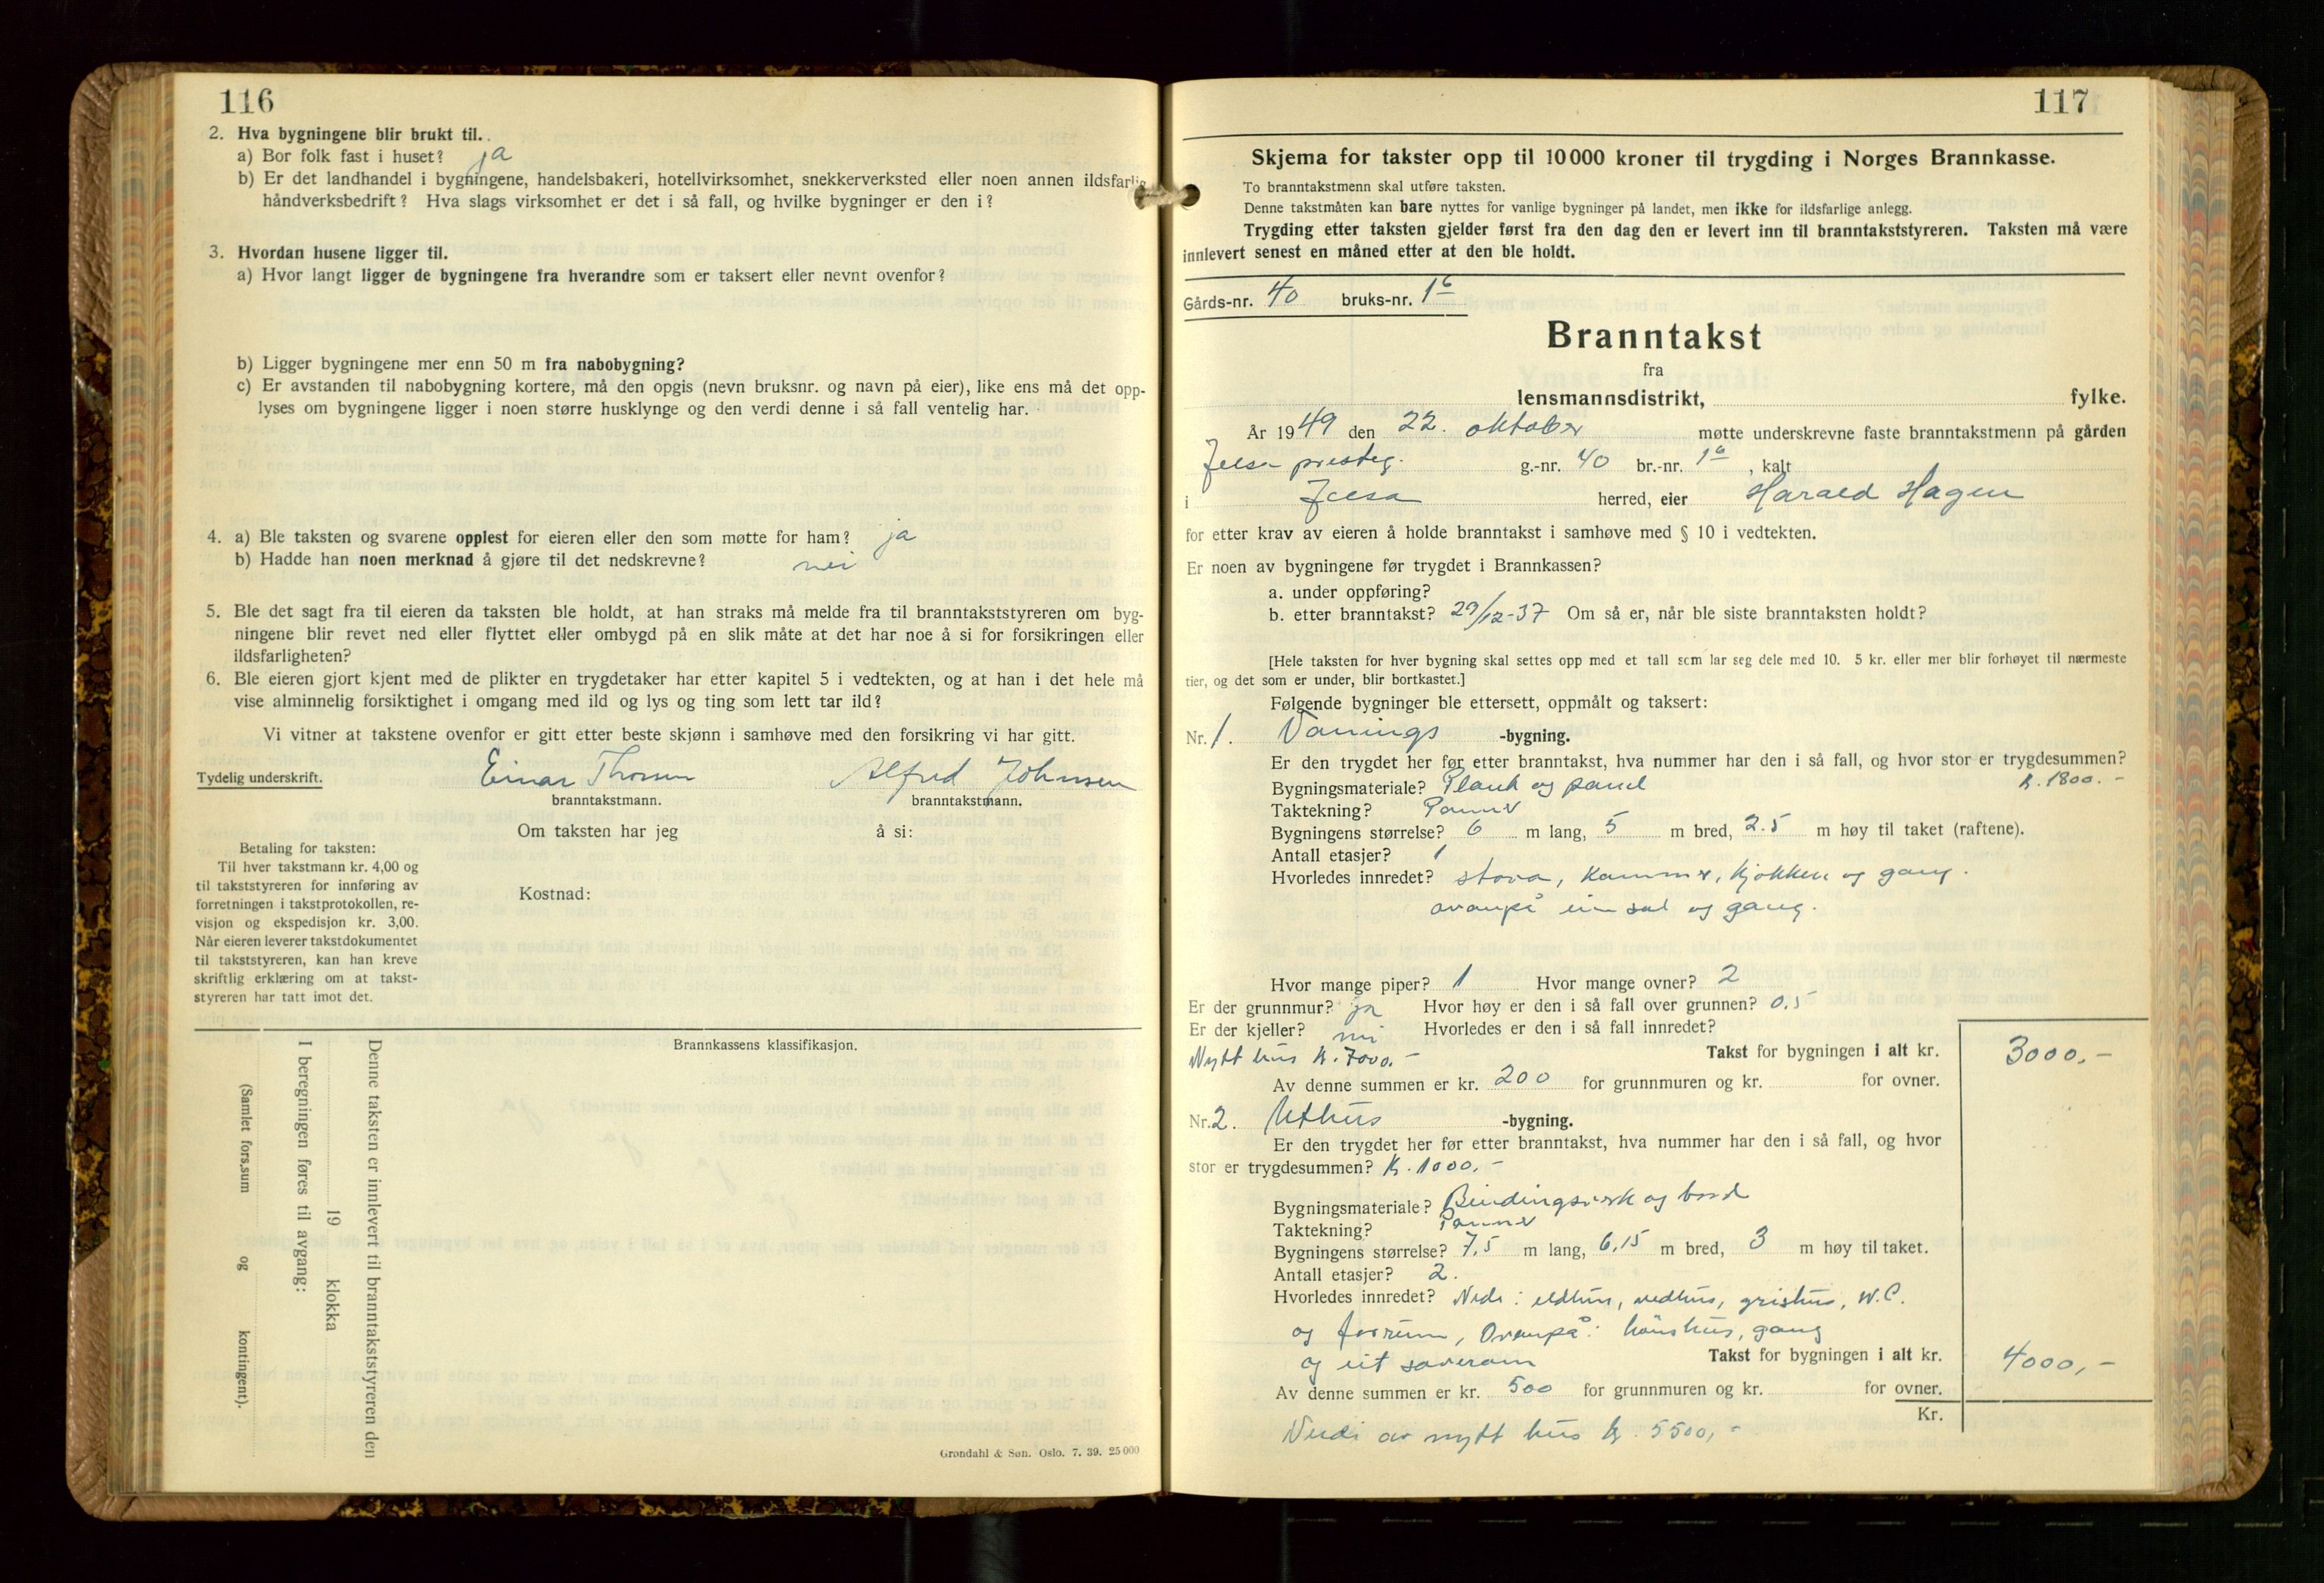 116
2. Hva bygningene blir brukt til.
a) Bor folk fast i huset? ja
b) Er det landhandel i bygningene, handelsbakeri, hotellvirksomhet, snekkerverksted eller noen annen ildsfarlig
håndverksbedrift? Hva slags virksomhet er det i så fall, og hvilke bygninger er den i?
3. Hvordan husene ligger til.
a) Hvor langt ligger de bygningene fra hverandre som er taksert eller nevnt ovenfor?
b) Ligger bygningene mer enn 50 m fra nabobygning?
c) Er avstanden til nabobygning kortere, må den opgis (nevn bruksnr. og navn på eier), like ens må det opp-
lyses om bygningene ligger i noen større husklynge og den verdi denne i så fall ventelig har.
4. a) Ble taksten og svarene opplest for eieren eller den som møtte for ham? ja
b) Hadde han noen merknad å gjøre til det nedskrevne? nei
5. Ble det sagt fra til eieren da taksten ble holdt, at han straks må melde fra til branntakststyreren om byg-
ningene blir revet ned eller flyttet eller ombygd på en slik måte at det har noe å si for forsikringen eller
ildsfarligheten?
6. Ble eieren gjort kjent med de plikter en trygdetaker har etter kapitel 5 i vedtekten, og at han i det hele må
vise alminnelig forsiktighet i omgang med ild og lys og ting som lett tar ild?
Vi vitner at takstene ovenfor er gitt etter beste skjønn i samhøve med den forsikring vi har gitt.
Tydelig underskrift. Einar Thorsen Alfred Johnsen
branntakstmann. branntakstmann.
Om taksten har jeg å si:
Betaling for taksten:
Til hver takstmann kr. 4,00 og
til takststyreren for innføring av
forretningen i takstprotokollen, re-
visjon og ekspedisjon kr. 3,00.
Når eieren leverer takstdokumentet
til takststyreren, kan han kreve
skriftlig erklæring om at takst-
styreren har tatt imot det.
Kostnad:
Brannkassens klassifikasjon.
Denne taksten er innlevert til branntakststyreren den
19 klokka
I beregningen føres til avgang:
(Samlet fors.sum og kontingent).
Grøndahl & Søn. Oslo. 7. 39. 25 000
117
Skjema for takster opp til 10 000 kroner til trygding i Norges Brannkasse.
To branntakstmenn skal utføre taksten.
Denne takstmåten kan bare nyttes for vanlige bygninger på landet, men ikke for ildsfarlige anlegg.
Trygding etter taksten gjelder først fra den dag den er levert inn til branntakststyreren. Taksten må være
innlevert senest en måned etter at den ble holdt.
Gårds-nr. 40 bruks-nr. 16
Branntakst
fra
lensmannsdistrikt, fylke.
År 1949 den 22. oktober møtte underskrevne faste branntakstmenn på gården
Jelsa presteg. g.-nr. 40 br.-nr. 16, kalt
i Jelsa herred, eier Harald Hagen
for etter krav av eieren å holde branntakst i samhøve med § 10 i vedtekten.
Er noen av bygningene før trygdet i Brannkassen?
a. under oppføring?
b. etter branntakst? 29/12-37 Om så er, når ble siste branntaksten holdt?
[Hele taksten for hver bygning skal settes opp med et tall som lar seg dele med 10. 5 kr. eller mer blir forhøyet til nærmeste
tier, og det som er under, blir bortkastet.]
Følgende bygninger ble ettersett, oppmålt og taksert:
Nr. 1. Vånings -bygning.
Er den trygdet her før etter branntakst, hva nummer har den i så fall, og hvor stor er trygdesummen?
Bygningsmateriale? Plank og panel kr. 1800.-
Taktekning? Panner
Bygningens størrelse? 6 m lang, 5 m bred, 2.5 m høy til taket (raftene).
Antall etasjer? 1
Hvorledes innredet? stova, kammer, kjøkken og gang.
ovanpå ein sal og gang.
Hvor mange piper? 1 Hvor mange ovner? 2
Er der grunnmur? ja Hvor høy er den i så fall over grunnen? 0.5
Er der kjeller? nei Hvorledes er den i så fall innredet?
Nytt hus kr. 7000.- Takst for bygningen i alt kr. 3000,-
Av denne summen er kr. 200 for grunnmuren og kr. for ovner.
Nr. 2. Uthus -bygning.
Er den trygdet her før etter branntakst, hva nummer har den i så fall, og hvor
stor er trygdesummen? kr. 1000.-
Bygningsmateriale? Bindingsverk og bord
Taktekning? Panner
Bygningens størrelse? 7,5 m lang, 6,15 m bred, 3 m høy til taket.
Antall etasjer? 2.
Hvorledes innredet? Nede: eldhus, vedhus, grishus, W.C.
og forrum, Ovanpå: hønshus, gang
og eit soverom Takst for bygningen i alt kr. 4000,-
Av denne summen er kr. 500 for grunnmuren og kr. for ovner.
Kr.
Verdi av nytt hus kr. 5500,-